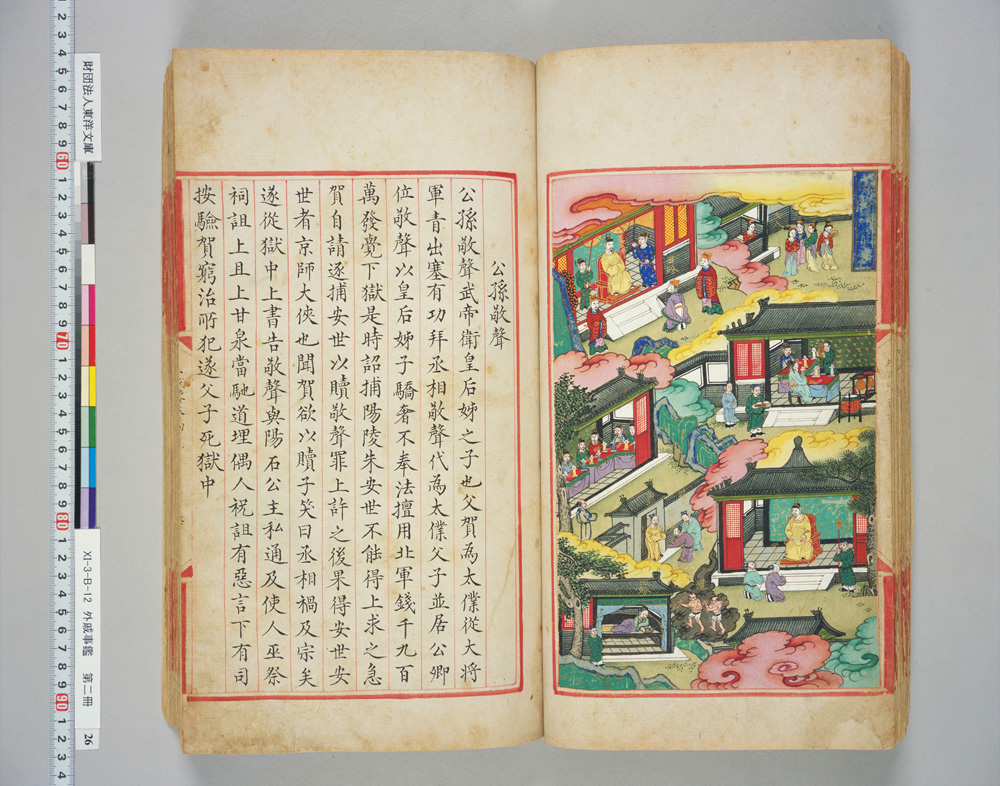 公孫敬聲
公孫敬聲武帝衛皇后姊之子也父賀為太僕從大將
軍青出塞有功拜丞相敬聲代為太僕父子並居公卿
位敬聲以皇后姊子驕奢不奉法擅用北軍錢千九百
萬發覺下獄是時詔捕陽陵朱安世不能得上求之急
賀自請逐捕安世以贖敬聲罪上許之後果得安世安
世者京師大俠也聞賀欲以贖子笑曰丞相禍及宗矣
遂從獄中上書告敬聲與陽石公主私通及使人巫祭
祠詛上且上甘泉當馳道埋偶人祝詛有惡言下有司
按驗賀窮治所犯遂父子死獄中
財団法人東洋文庫
XI-3-B-12 外戚事鑑 第二冊 26
2 3 4 5 6 7 8 9 60 1 2 3 4 5 6 7 8 9 70 1 2 3 4 5 6 7 8 9 80 1 2 3 4 5 6 7 8 9 90 1 2 3 4